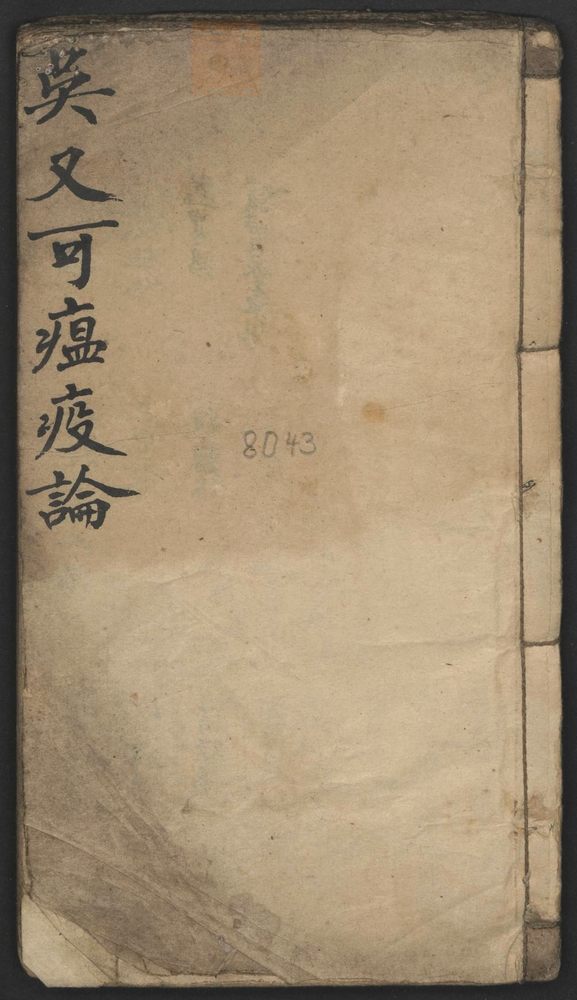 吳又可瘟疫論
8043